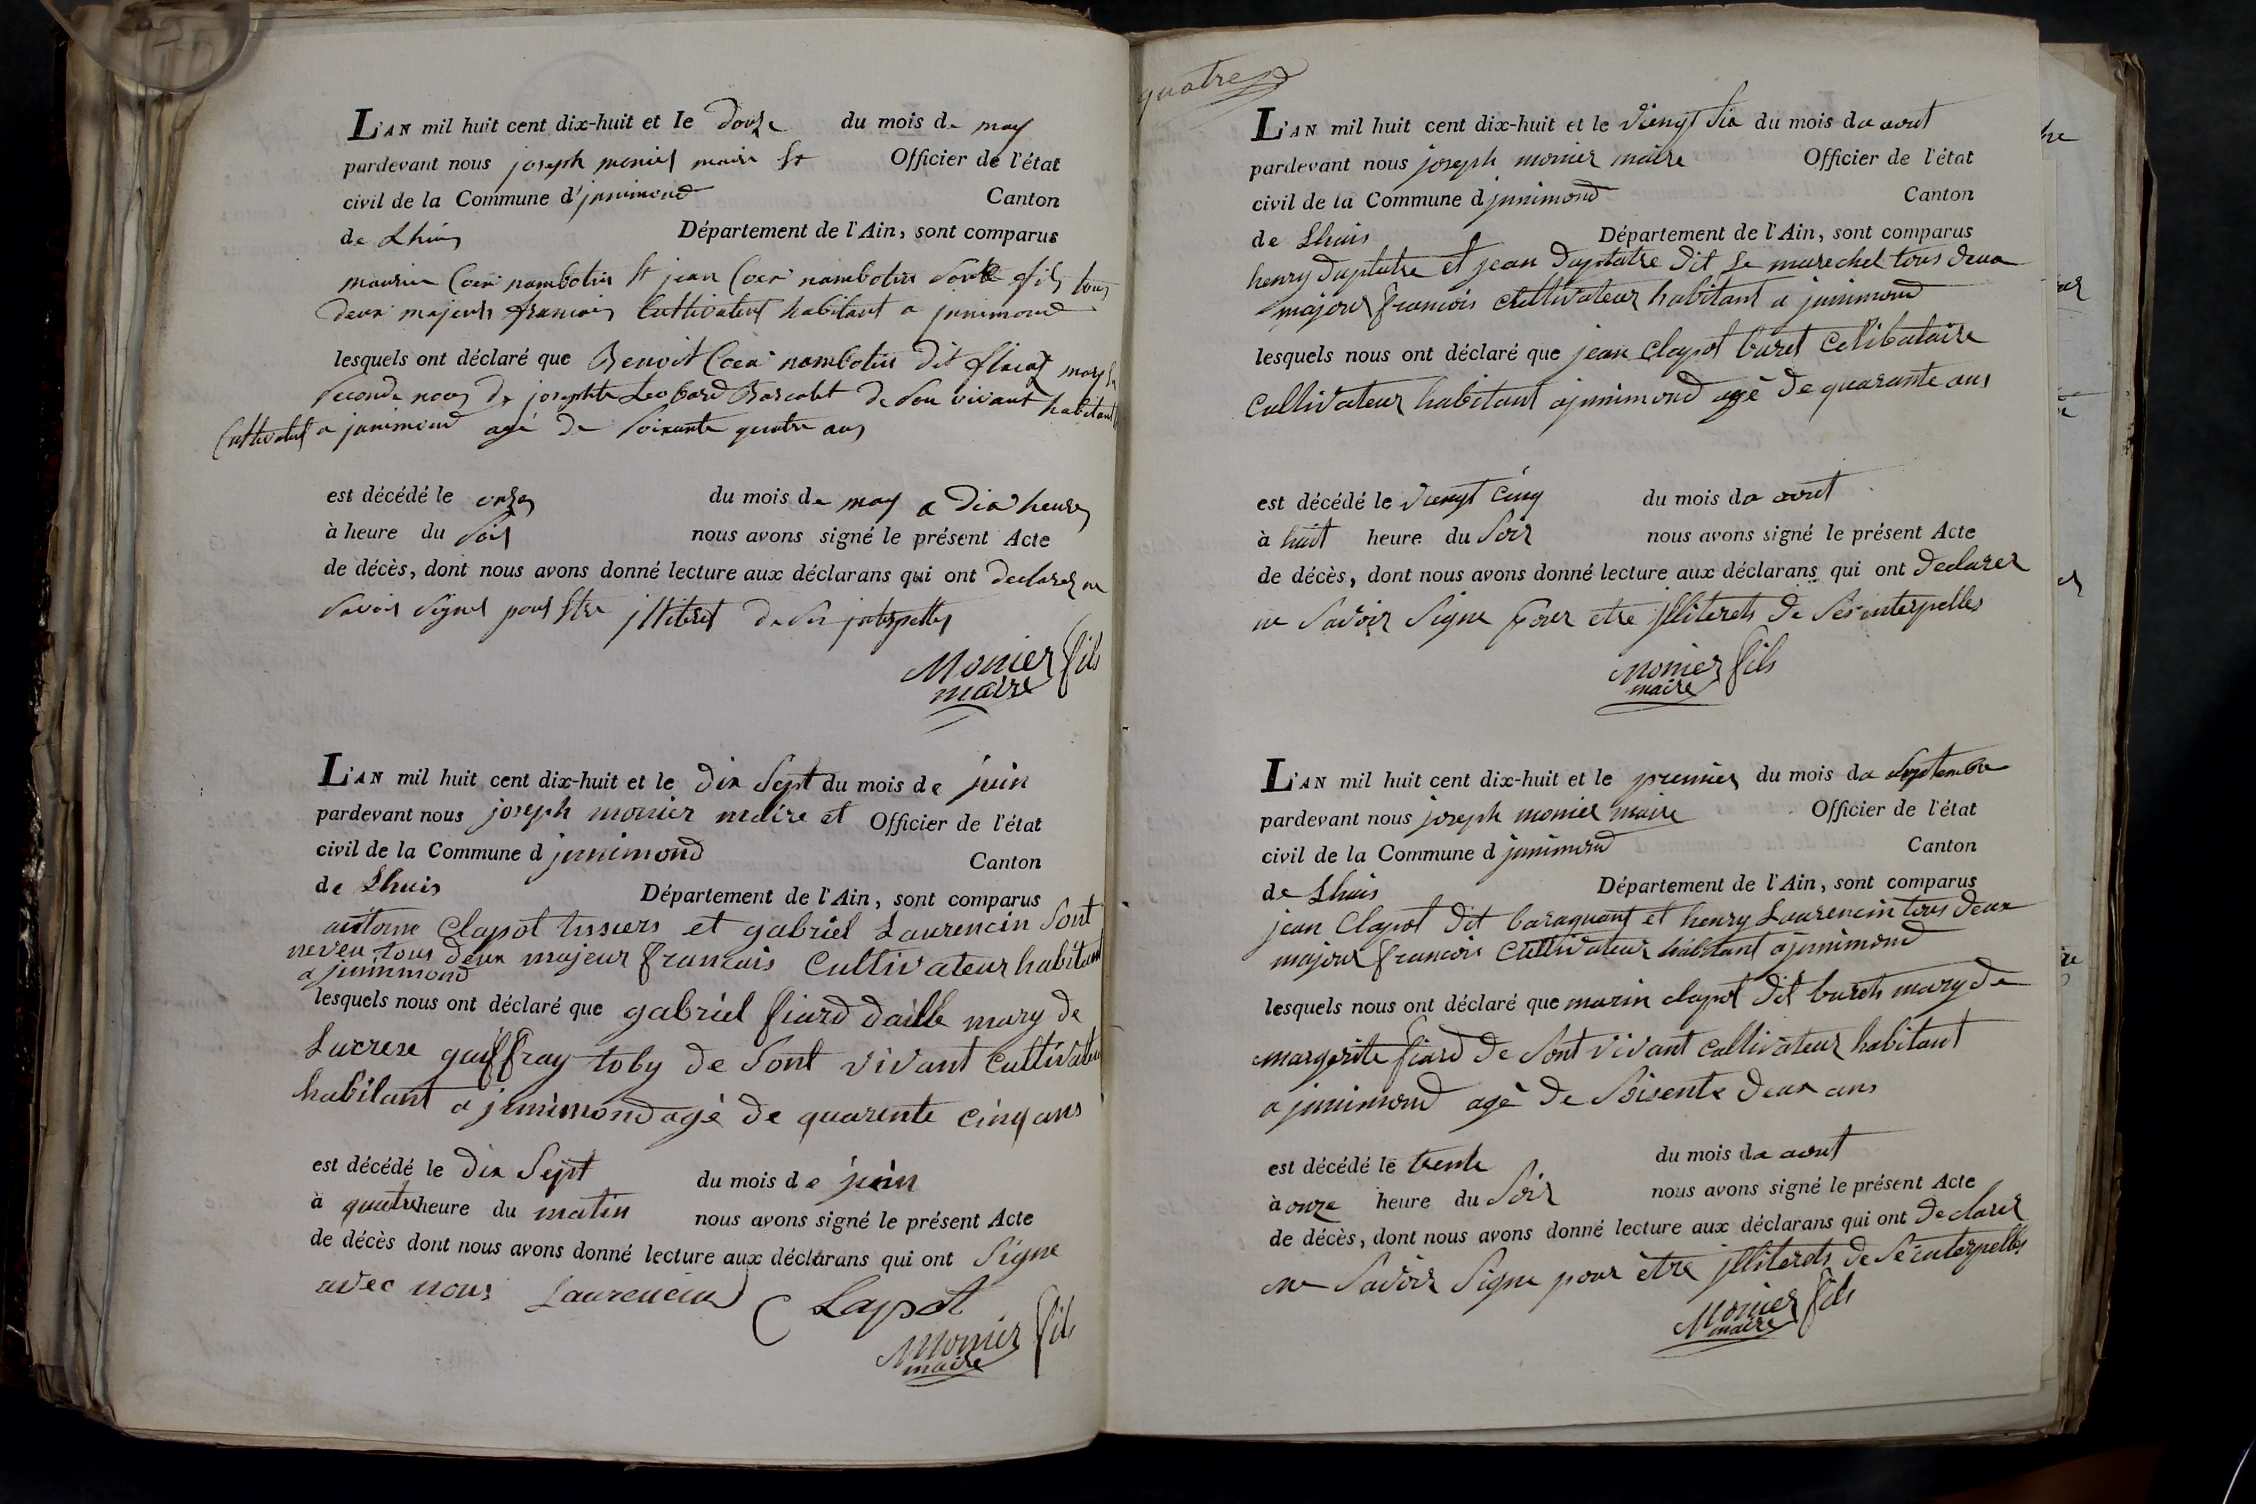 L'AN mil huit cent dix-huit et le douze du mois de may
pardevant nous joseph monier maire et Officier de l'état
civil de la Commune d'junimond Canton
de Lhuis Département de l'Ain, sont comparus
jean nambotin fils tous
deux majeurs francois Cultivateur habitant a junimond
lesquels ont déclaré que Benoit nambotin dit
Seconde de josephte de Son vivant habitant
Cultivateur a junimond agé de Soixante quatre ans
est décédé le onze du mois de may a dix heures
à heure du Soir nous avons signé le présent Acte
de décès, dont nous avons donné lecture aux déclarans qui ont declarer ne
Savoir Signer pour Etre jlliteret de Se jnterpelles
Monier fils
maire
L'AN mil huit cent dix-huit et le dix Sept du mois de juin
pardevant nous joseph monier maire et Officier de l'état
civil de la Commune d junimond Canton
de Lhuis Département de l'Ain, sont comparus
antoine Clapot tissiers et gabriel Laurencin Sont
neveu tous deux majeur francais Cultivateur habitant
a junimond
lesquels nous ont déclaré que gabriel fiard daille mary de
Lucrese guiffray toby de Sont vivant Cultivateur
habitant a junimond agé de quarente cinq ans
est décédé le dix Sept du mois de juin
à quatre heure du matin nous avons signé le présent Acte
de décès dont nous avons donné lecture aux déclarans qui ont Signe
avec nous Laurencin C Lapot
Monier fils
maire
quatre
L'AN mil huit cent dix-huit et le viengt Six du mois da aout
pardevant nous joseph monier maire Officier de l'état
civil de la Commune d junimond Canton
de Lhuis Département de l'Ain, sont comparus
henry duplatre et jean duplatre dit Le marechel tous deux
majour francois Cultivateur habitant a junimond
lesquels nous ont déclaré que jean Clapot buret Celibataire
Cultivateur habitant ajunimond agé de quarante ans
est décédé le viengt Cinq du mois da aout
à huit heure du Soir nous avons signé le présent Acte
de décès, dont nous avons donné lecture aux déclarans qui ont declarer
ne Savoir Signe pour etre jlliterets de Se interpelles
Monier fils
maire
L'AN mil huit cent dix-huit et le premier du mois da Septembre
pardevant nous joseph monier maire Officier de l'état
civil de la Commune d junimond Canton
de Lhuis Département de l'Ain, sont comparus
jean Clapot dit baraquant et henry Laurencin tous deux
majour francois Cultivateur habitant ajunimond
lesquels nous ont déclaré que marin clapot dit burets mary de
margerite fiard de Sont vivant cultivateur habitant
a junimond agé de Soisente deux ans
est décédé le trente du mois da aout
à onze heure du Soir nous avons signé le présent Acte
de décès, dont nous avons donné lecture aux déclarans qui ont declarer
ne Savoir Signe pour être jlliterets de Se interpelles
Monier fils
maire